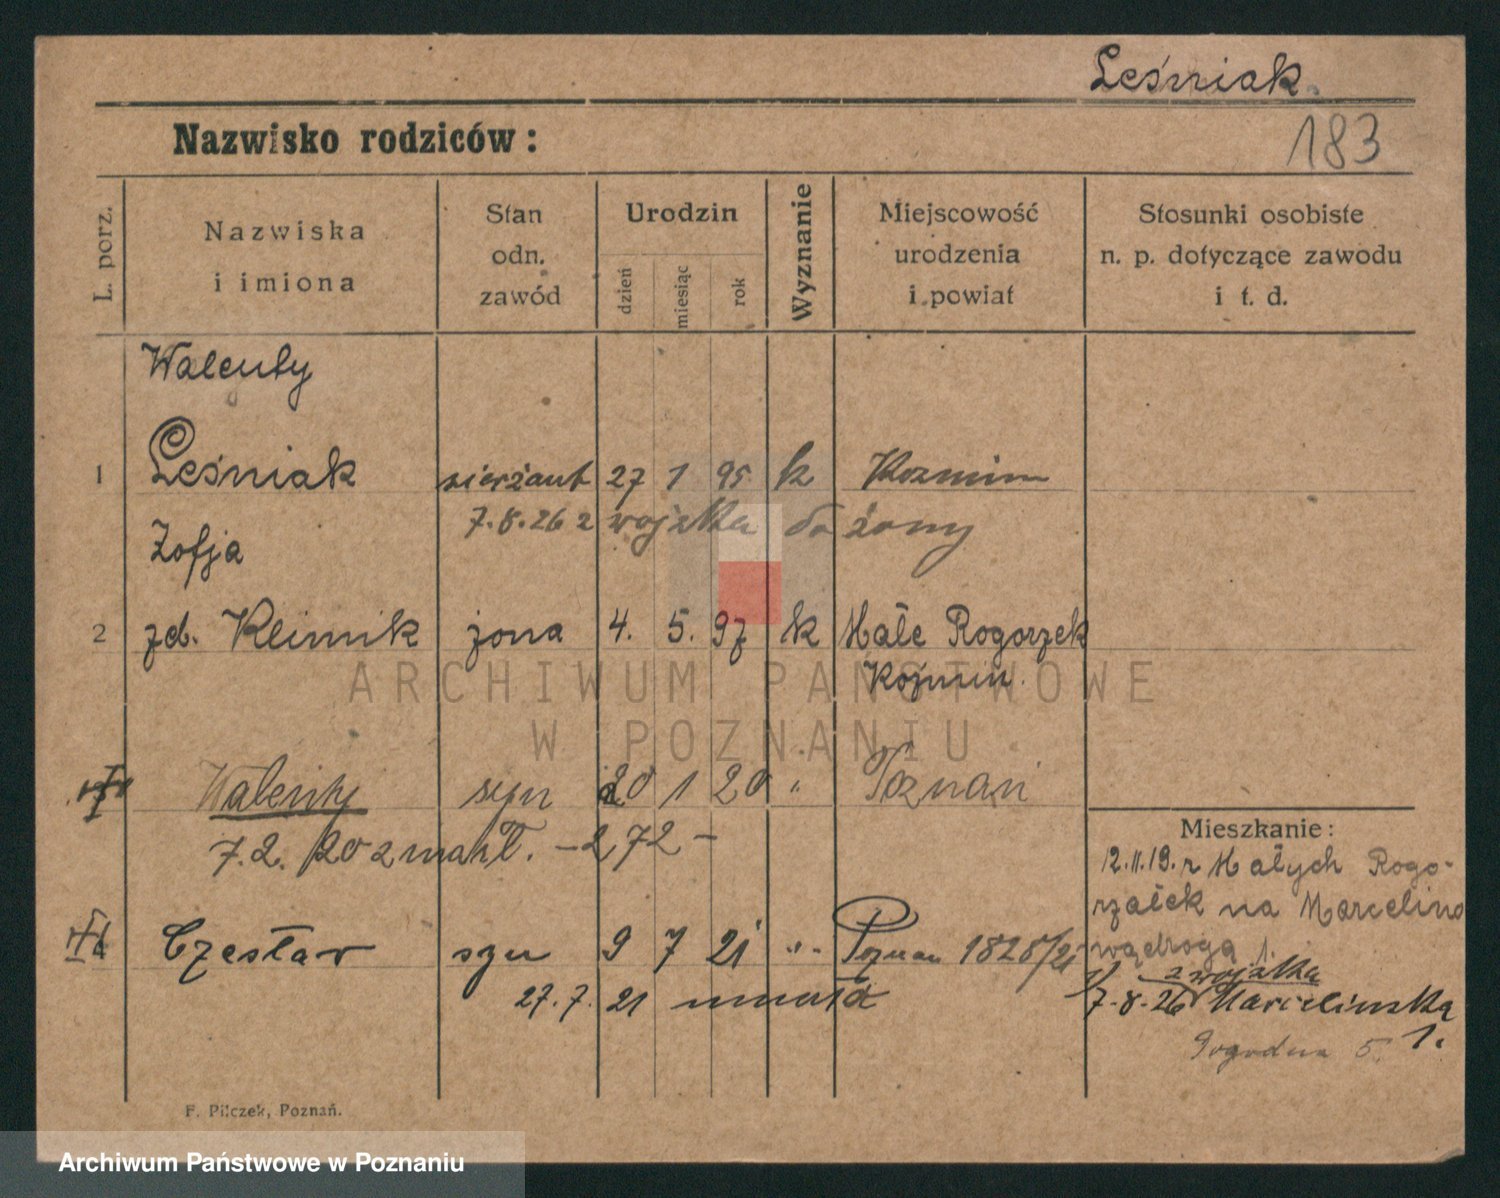 Leśniak.
Nazwisko rodziców:
183
L. porz.
Nazwiska
i imiona
Stan
odn.
zawód
Urodzin
dzień
miesiąc
rok
Wyznanie
Miejscowość
urodzenia
i powiat
Stosunki osobiste
n. p. dotyczące zawodu
i t. d.
Walenty
1 Leśniak sierżant 27 1 95 k Kozmin
7.8.26 z wojska do żony
Zofja
2 zd. Klimik żona 4. 5. 97 k Małe Rogorzek
Kozmin.
ARCHIWUM PAŃSTWOWE
W POZNANIU
Walenty syn 20 1 20 " Poznań
7.2. 20 zmarł. -272-
Mieszkanie:
12.11.19. z Małych Rogo-
rzałek na Marcelino
wądrogą 1.
4 Czesław syn 9 7 21 " Poznan 1828/21
27.7. 21 umarł
z wojska
7.8.26 Marcelinska
1.
Pogodna 5.
F. Pilczek, Poznań.
Archiwum Państwowe w Poznaniu